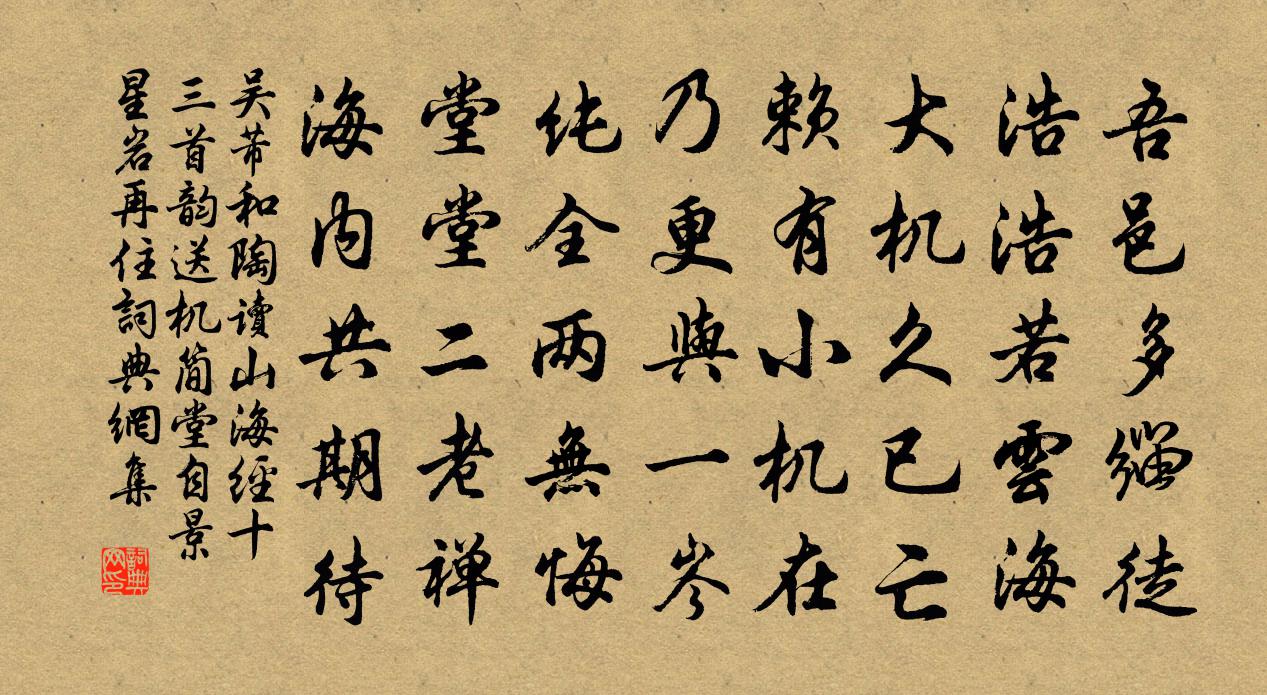 吾邑多缁徒
浩浩若雲海
大机久已亡
赖有小机在
乃更與一岑
纯全两無悔
堂堂二老禅
海内共期待
吴芾和陶讀山海經十
三首韵送机简堂自景
星岩再住詞典網集
詞典网印